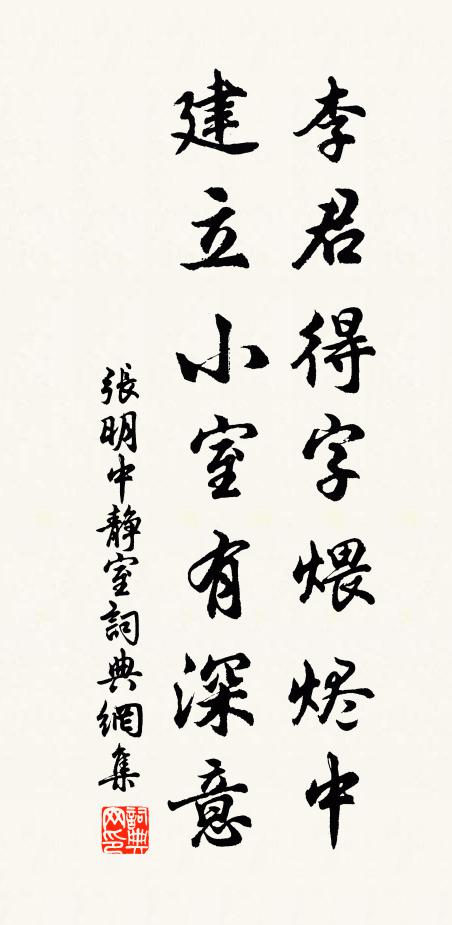 李君得字煨烬中
建立小室有深意
張明中静室詞典網集
詞典网印